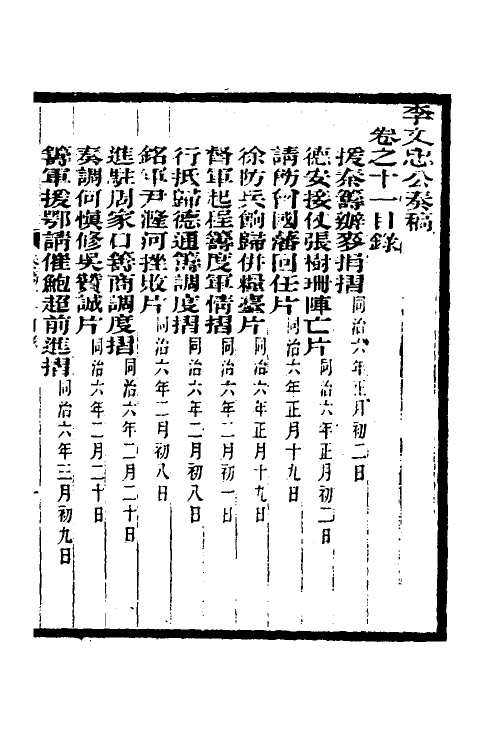 李文忠公奏稿
卷之十一目錄
援秦籌辦麥捐摺同治六年正月初二日
德安接仗張樹珊陣亡片同治六年正月初二日
請飭曾國藩回任片同治六年正月十九日
徐防兵餉歸併糧臺片同治六年正月十九日
督軍起程籌度軍情摺同治六年二月初一日
行抵歸德通籌調度摺同治六年二月初八日
銘軍尹漋河挫敗片同治六年二月初八日
進駐周家口籌商調度摺同治六年二月二十日
奏調何慎修吳贊誠片同治六年二月二十日
籌軍援鄂請催鮑超前進摺同治六年三月初九日